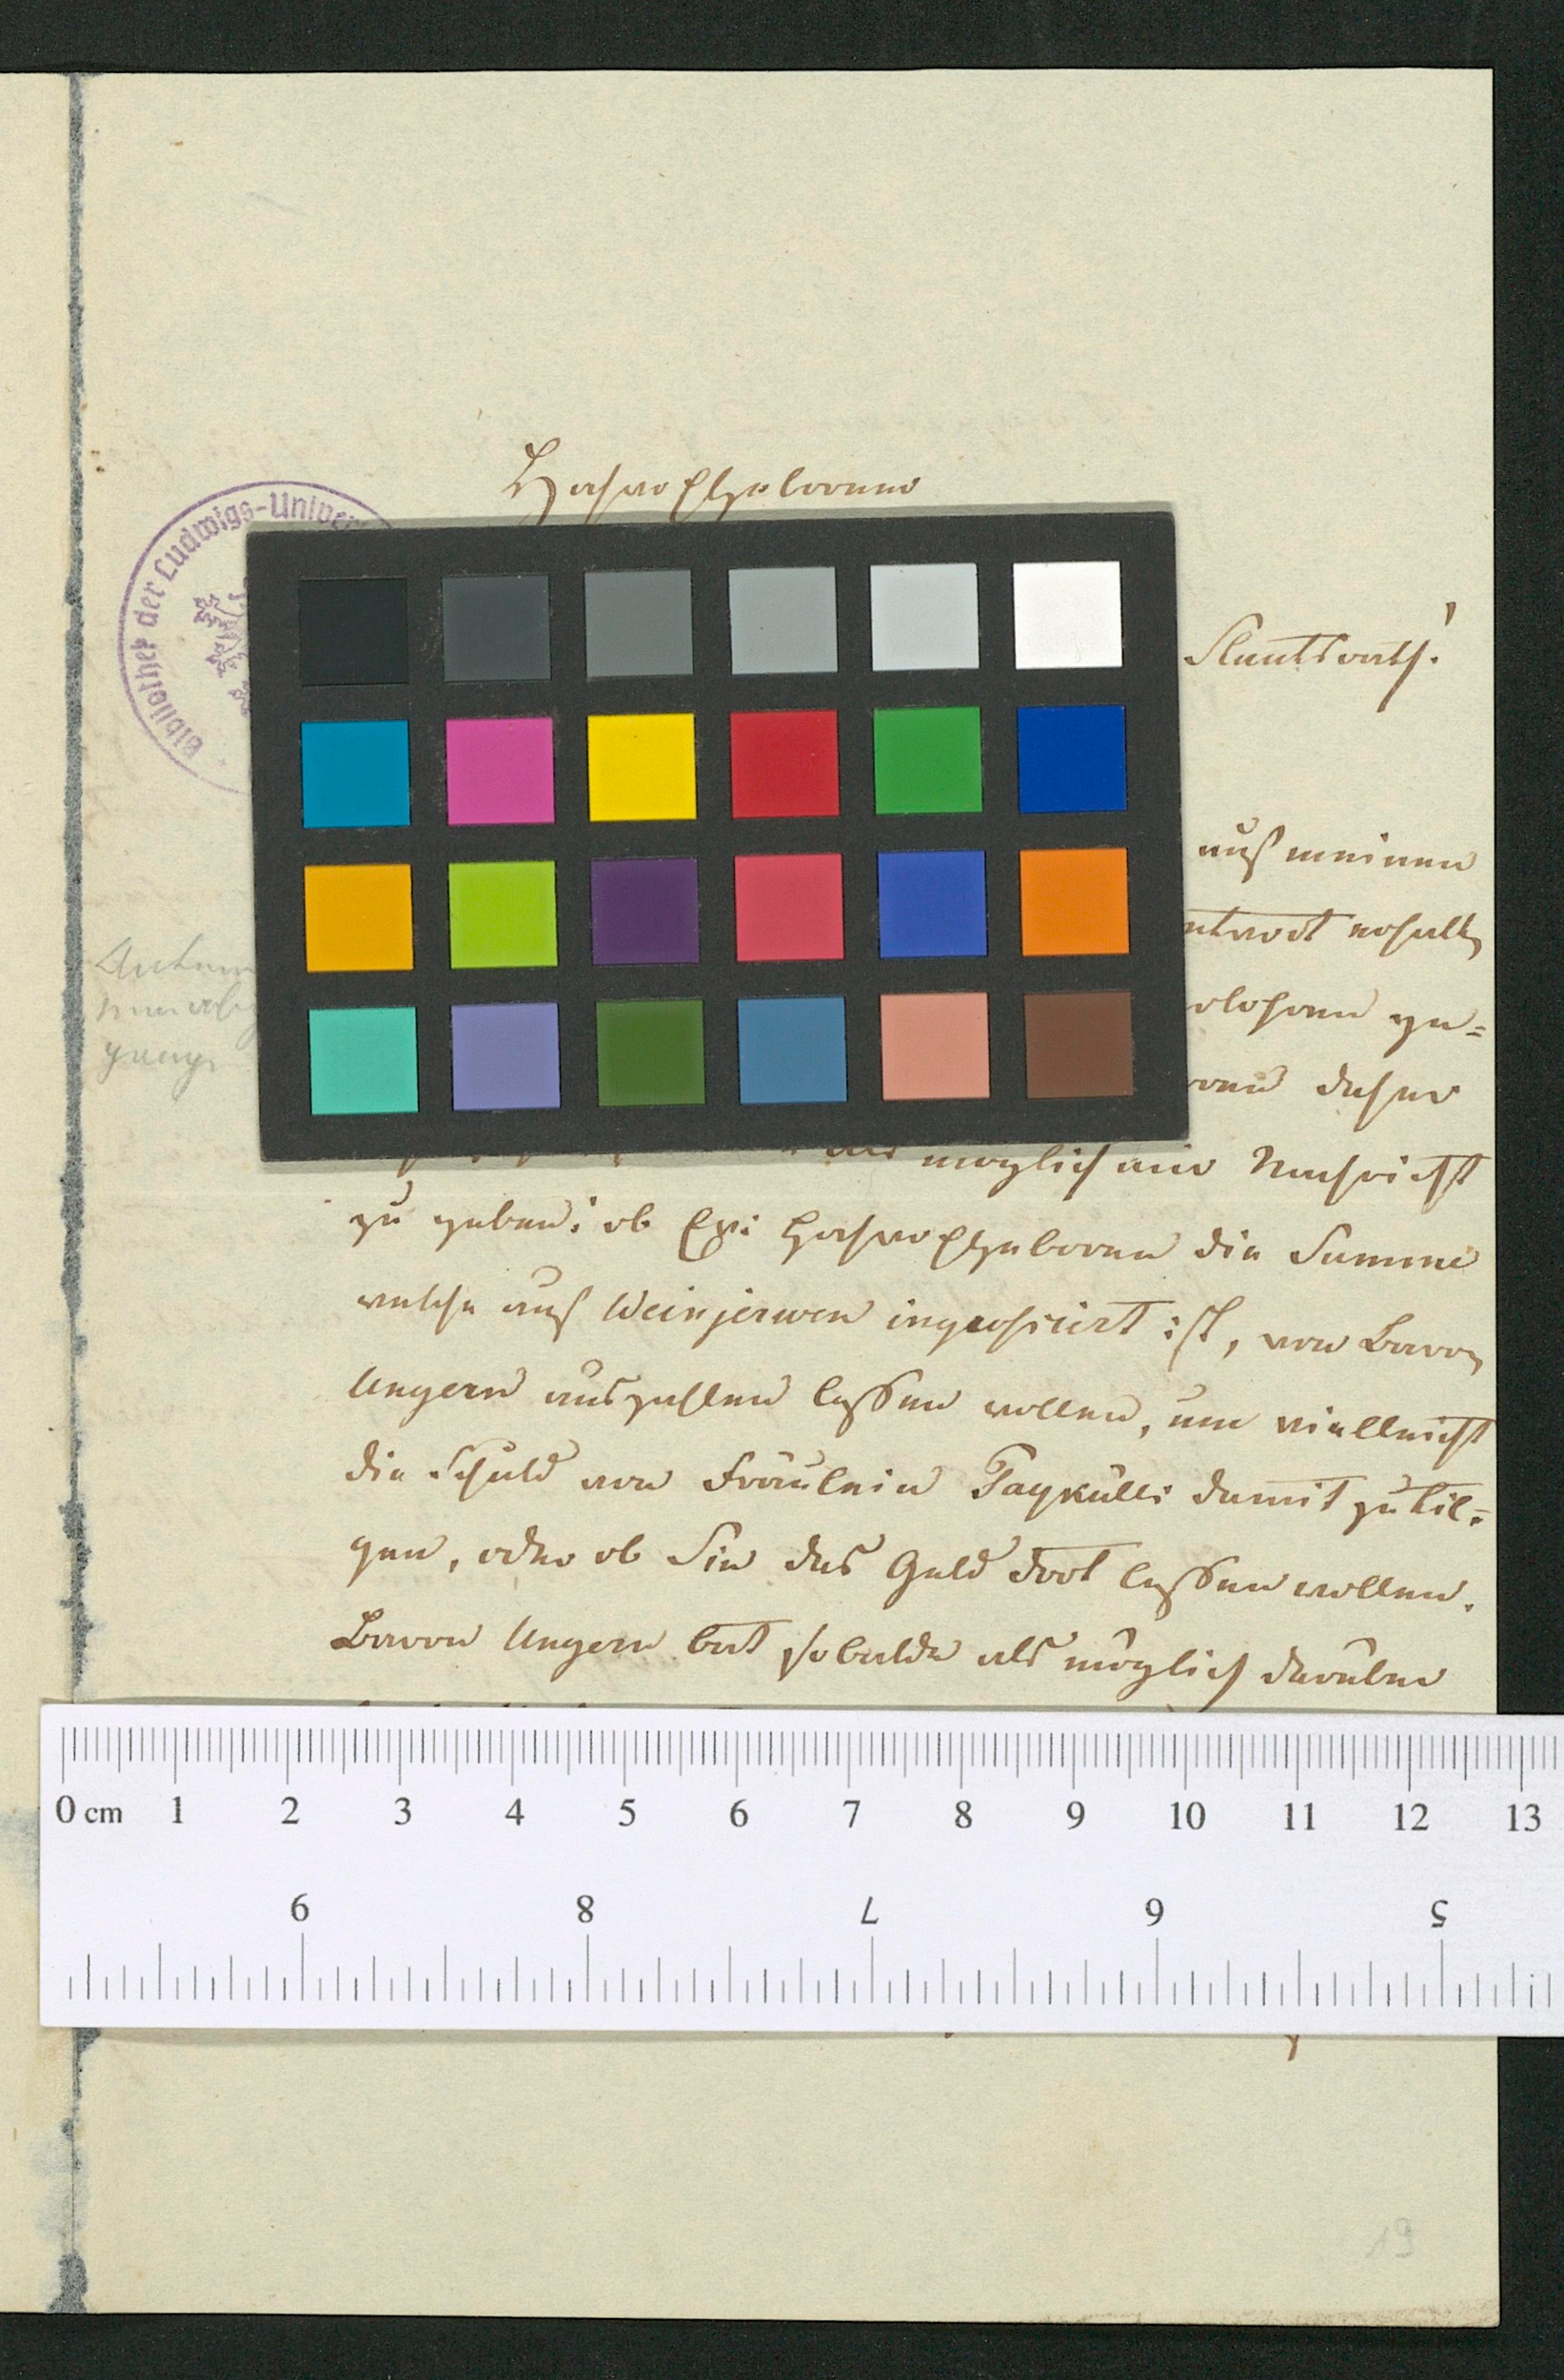 Hochwohlgeborener
Bibliothek der Ludwigs-Univer
Staatsrath!
auf meinen
ntwort erhalt
verlohren ge=
ren daher
möglich mir Nachricht
zu geben: ob Ew: Hochwohlgeboren die Summe
welche auf Weinjerwen ingrossirt ist, von Baron
Ungern auszahlen lassen wollen, um vielleicht
die Schuld von Fräulein Taykülli damit zu til=
gen, oder ob Sie das Geld dort lassen wollen.
Baron Ungern bat sobalde als möglich darüber
0 cm 1 2 3 4 5 6 7 8 9 10 11 12 13
9 8 7 6 5
19